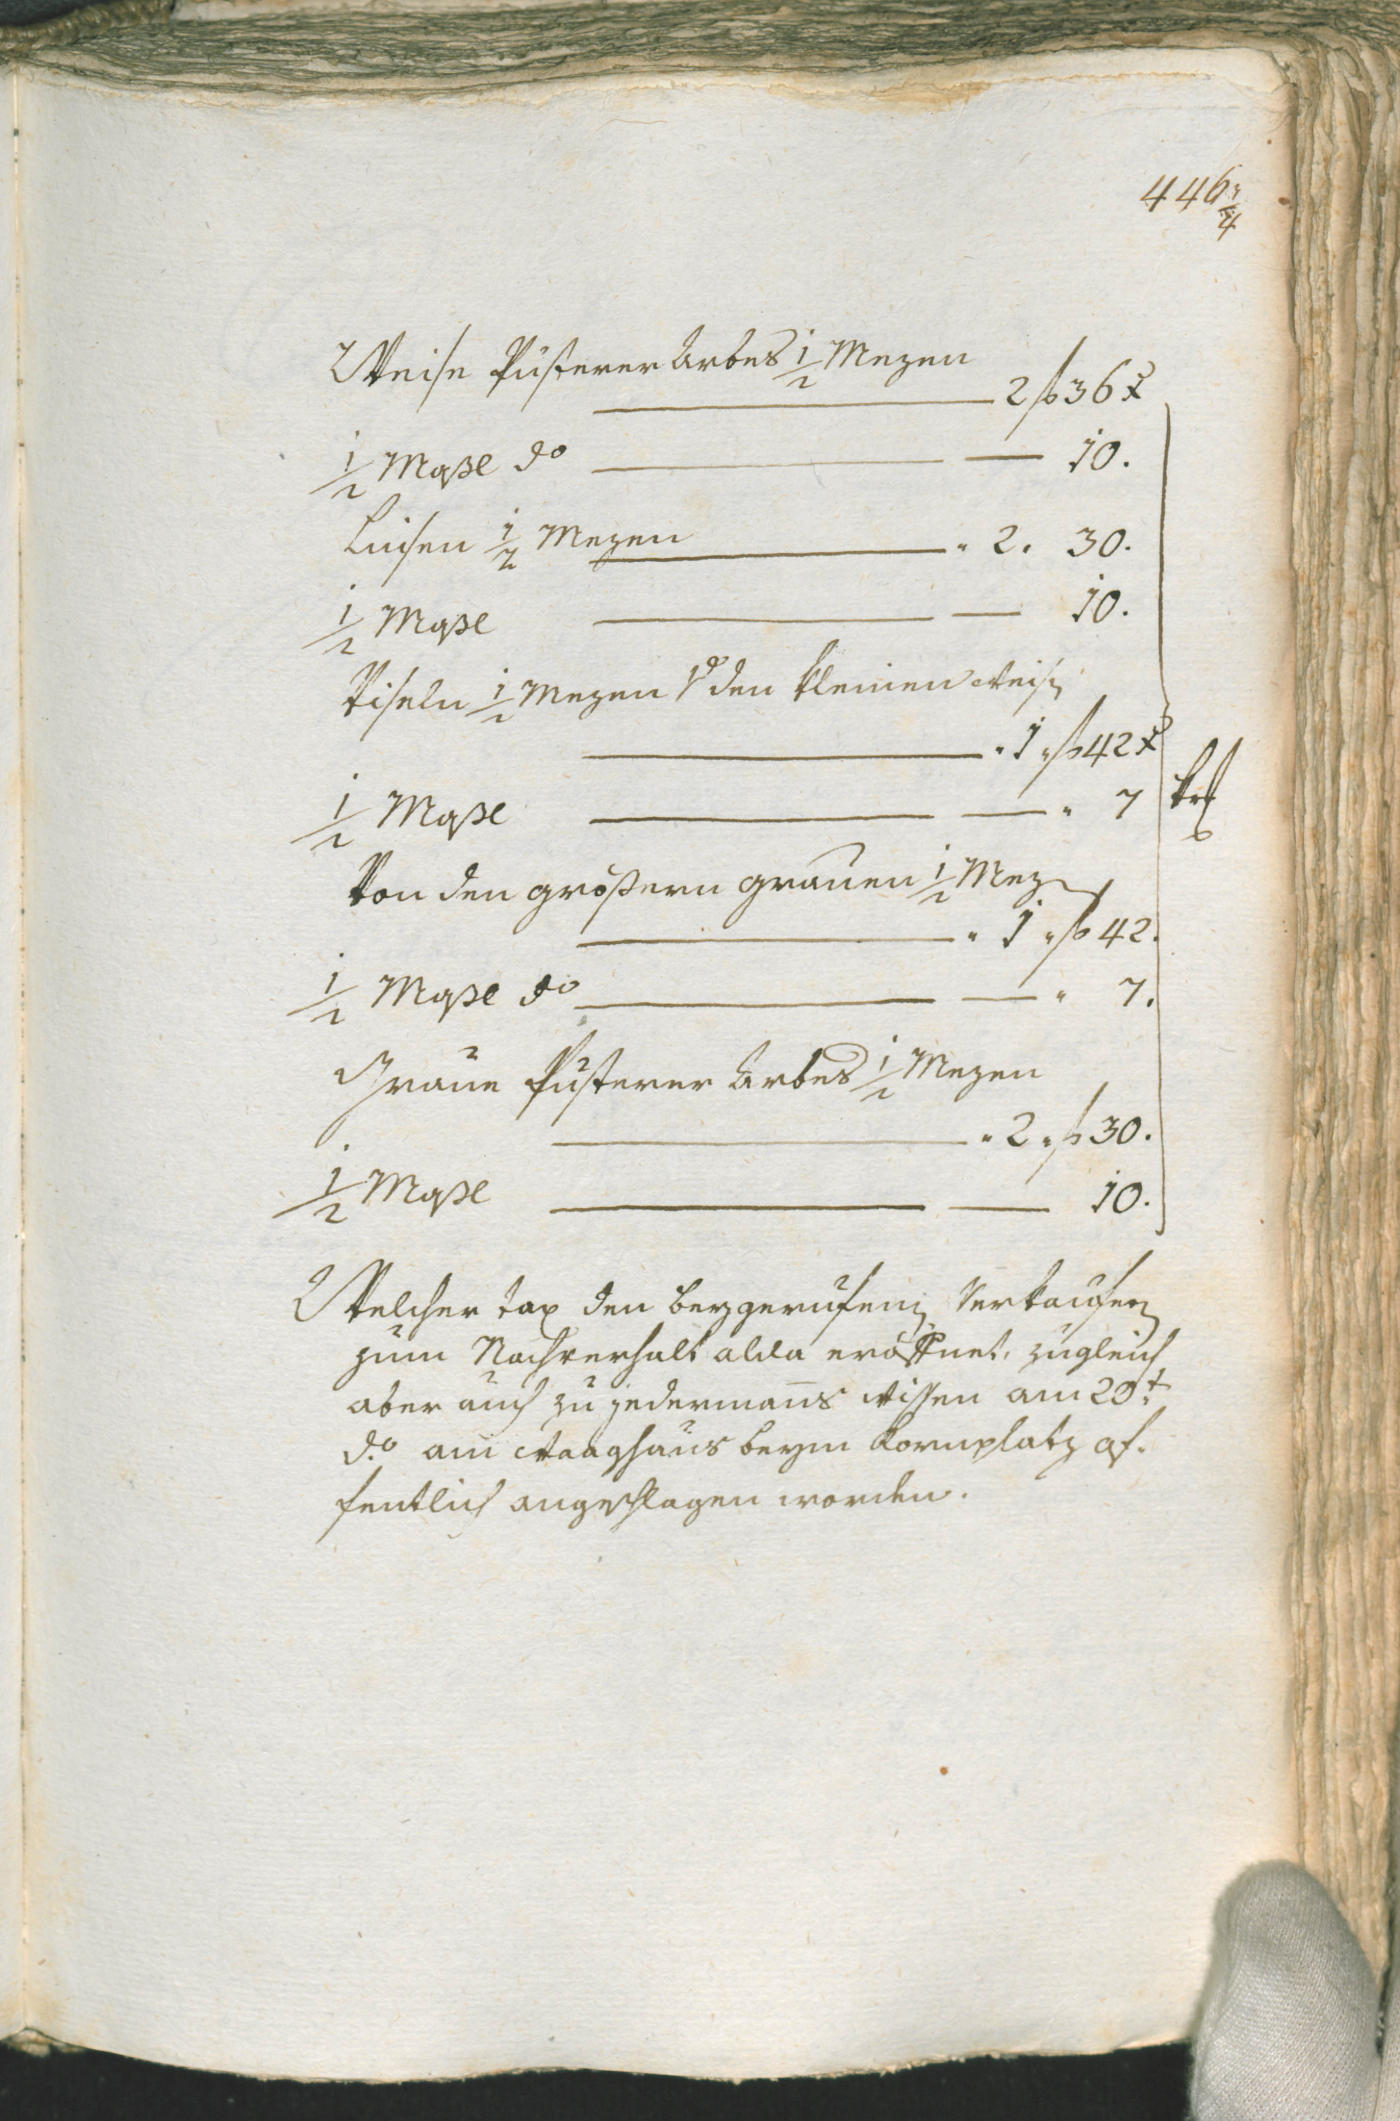 446 3/4
Weise Pusterer Arbes 1/2 Mezen
2 f 36 x
1/2 Maßl do 10.
Linsen 1/2 Mezen 2. 30.
1/2 Maßl 10.
Fisoln 1/2 Mezen von den kleinen weisen
1 f 42 x
1/2 Maßl 7
Von den größern grauen 1/2 Mezen
1 f 42.
1/2 Maßl do 7.
Graue Pusterer Arbes 1/2 Mezen
2 f 30.
1/2 Maßl 10.
Welcher tax den berzgerufenen Verkaufern
zum Nachverhalt alda eröffnet, zugleich
aber auch zu jedermans wissen am 20t
do am Waaghaus beym Kornplatz of-
fentlich angeschlagen worden.